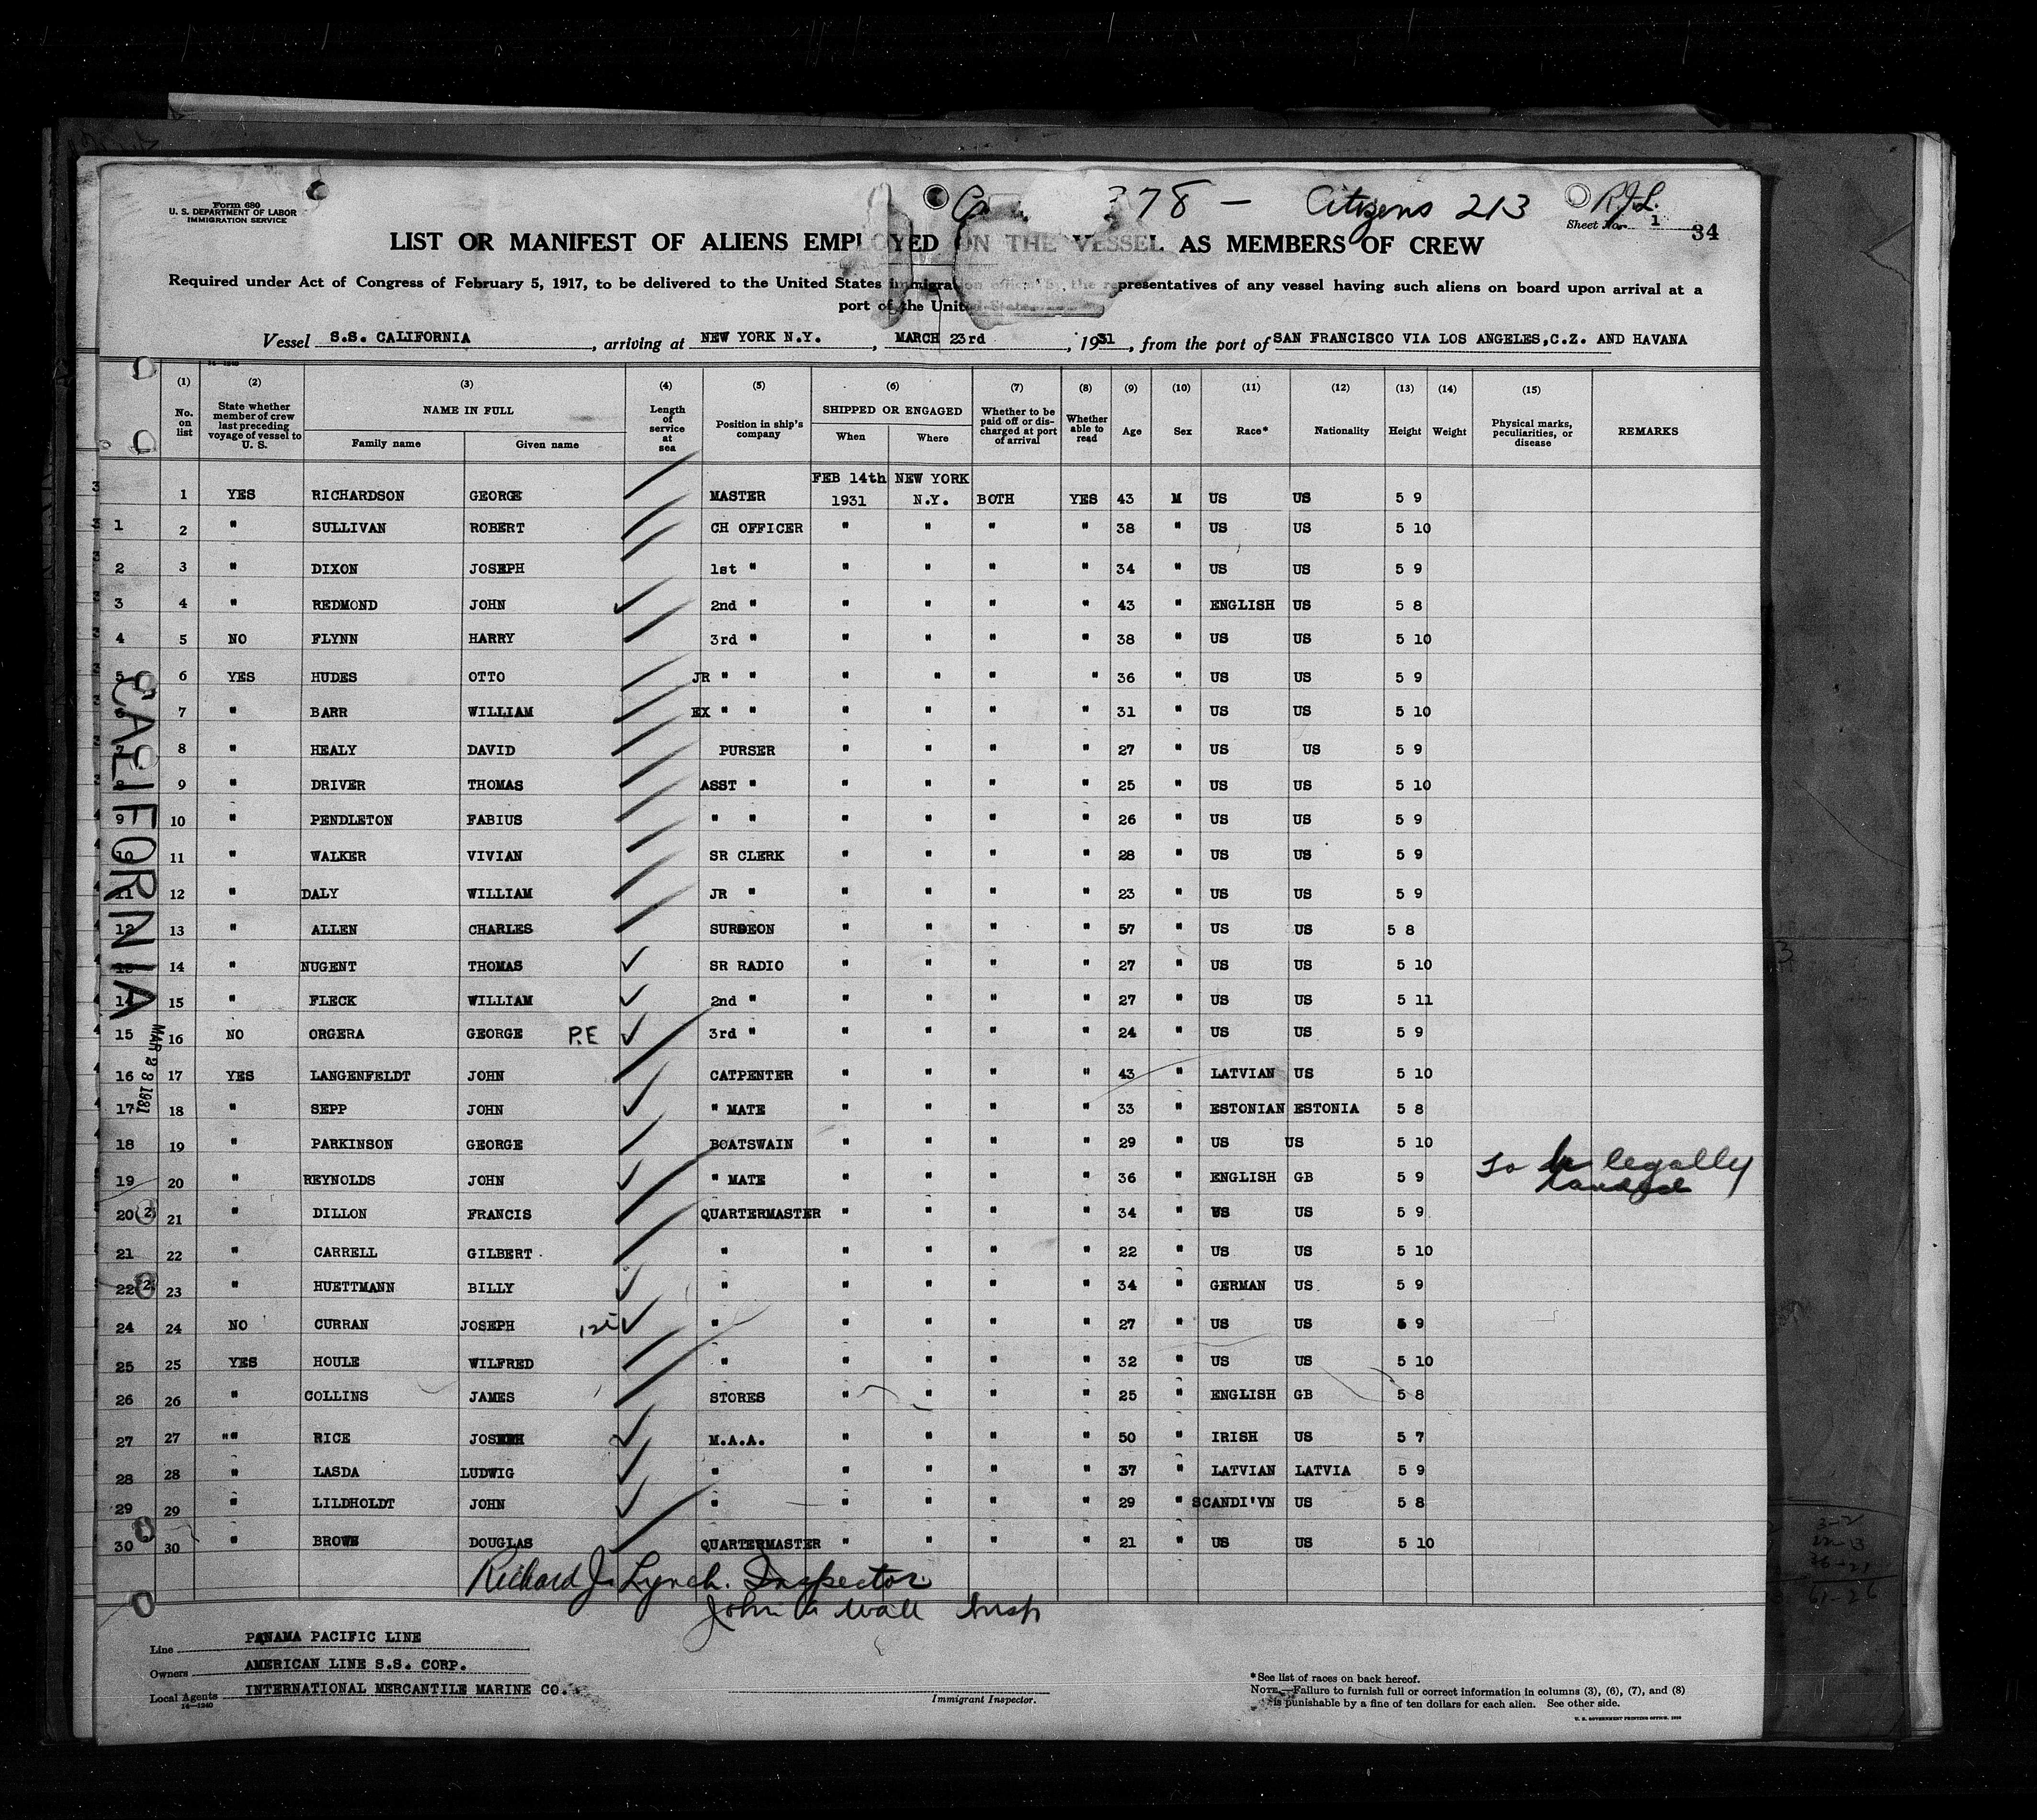 Form 680
U. S. DEPARTMENT OF LABOR
IMMIGRATION SERVICE
378 — Citizens 213 R.J.L.
Sheet No. 1 34
LIST OR MANIFEST OF ALIENS EMPLOYED ON THE VESSEL AS MEMBERS OF CREW
Required under Act of Congress of February 5, 1917, to be delivered to the United States immigration official by the representatives of any vessel having such aliens on board upon arrival at a
port of the United States
Vessel S.S. CALIFORNIA, arriving at NEW YORK N.Y., MARCH 23rd, 1931, from the port of SAN FRANCISCO VIA LOS ANGELES,C.Z. AND HAVANA
14-1240
(1) (2) (3) (4) (5) (6) (7) (8) (9) (10) (11) (12) (13) (14) (15)
No. on list State whether member of crew last preceding voyage of vessel to U. S. NAME IN FULL Family name Given name Length of service at sea Position in ship's company SHIPPED OR ENGAGED When Where Whether to be paid off or discharged at port of arrival Whether able to read Age Sex Race* Nationality Height Weight Physical marks, peculiarities, or disease REMARKS
FEB 14th NEW YORK
1 YES RICHARDSON GEORGE MASTER 1931 N.Y. BOTH YES 43 M US US 5 9
1 2 " SULLIVAN ROBERT CH OFFICER " " " " 38 " US US 5 10
2 3 " DIXON JOSEPH 1st " " " " " 34 " US US 5 9
3 4 " REDMOND JOHN 2nd " " " " " 43 " ENGLISH US 5 8
4 5 NO FLYNN HARRY 3rd " " " " " 38 " US US 5 10
5 6 YES HUDES OTTO JR " " " " " " 36 " US US 5 9
6 7 " BARR WILLIAM EX " " " " " " 31 " US US 5 10
7 8 " HEALY DAVID PURSER " " " " 27 " US US 5 9
8 9 " DRIVER THOMAS ASST " " " " " 25 " US US 5 10
9 10 " PENDLETON FABIUS " " " " " " 26 " US US 5 9
10 11 " WALKER VIVIAN SR CLERK " " " " 28 " US US 5 9
11 12 " DALY WILLIAM JR " " " " " 23 " US US 5 9
12 13 " ALLEN CHARLES SURGEON " " " " 57 " US US 5 8
13 14 " NUGENT THOMAS SR RADIO " " " " 27 " US US 5 10
14 15 " FLECK WILLIAM 2nd " " " " " 27 " US US 5 11
15 16 NO ORGERA GEORGE P.E 3rd " " " " " 24 " US US 5 9
16 17 YES LANGENFELDT JOHN CATPENTER " " " " 43 " LATVIAN US 5 10
17 18 " SEPP JOHN " MATE " " " " 33 " ESTONIAN ESTONIA 5 8
18 19 " PARKINSON GEORGE BOATSWAIN " " " " 29 " US US 5 10
19 20 " REYNOLDS JOHN " MATE " " " " 36 " ENGLISH GB 5 9 to be legally landed
20 21 " DILLON FRANCIS QUARTERMASTER " " " " 34 " US US 5 9
21 22 " CARRELL GILBERT " " " " " 22 " US US 5 10
22 23 " HUETTMANN BILLY " " " " " 34 " GERMAN US 5 9
24 24 NO CURRAN JOSEPH " " " " " 27 " US US 5 9
25 25 YES HOULE WILFRED " " " " " 32 " US US 5 10
26 26 " COLLINS JAMES STORES " " " " 25 " ENGLISH GB 5 8
27 27 "" RICE JOSEPH M.A.A. " " " " 50 " IRISH US 5 7
28 28 " LASDA LUDWIG " " " " " 37 " LATVIAN LATVIA 5 9
29 29 " LILDHOLDT JOHN " " " " " 29 " SCANDI'VN US 5 8
30 30 " BROWN DOUGLAS QUARTERMASTER " " " " 21 " US US 5 10
CALIFORNIA
MAR 23 1931
Richard J. Lynch. Inspector
John Wall Insp
Line PANAMA PACIFIC LINE
Owners AMERICAN LINE S.S. CORP.
Local Agents INTERNATIONAL MERCANTILE MARINE CO.
14-1240
Immigrant Inspector.
*See list of races on back hereof.
NOTE.—Failure to furnish full or correct information in columns (3), (6), (7), and (8)
is punishable by a fine of ten dollars for each alien. See other side.
U. S. GOVERNMENT PRINTING OFFICE